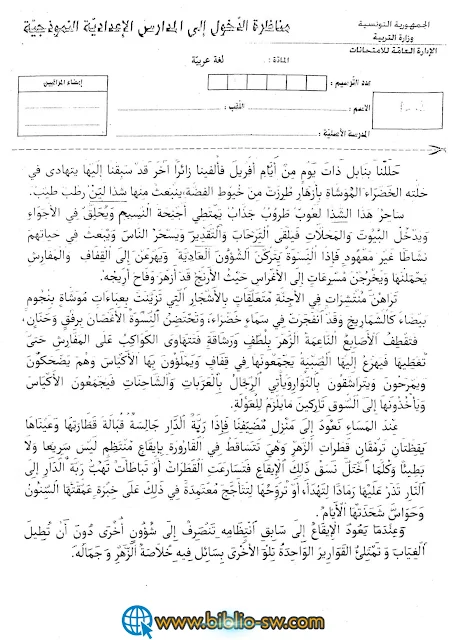 الجمهورية التونسية
وزارة التربية
الإدارة العامّة للامتحانات
مناظرة الدّخول إلى المدارس الإعداديّة النموذجيّة
المادّة : لغة عربيّة
عدد التّرسيم :
الاسم : اللّقب :
المدرسة الأصليّة :
إمضاء المراقبين
حَلَلْنا بنابل ذات يَوْم مِنْ أيّام أفْريل فألفينا زائرًا آخَر قد سَبقنا إليْها يتهادى في
حلته الخضْراء المُوشّاة بأزهار طُرزتْ منْ خُيوط الفضة ينبعثُ منها شذا ليّن رطب طيّب.
ساحرٌ هذا الشذا لعوبٌ طروبٌ جذابٌ يمْتطي أجنحة النّسيم ويُحَلّقُ في الأجْواءِ
ويدْخُلُ البُيُوتَ والمَحلاّت فيلْقى التّرحَابَ والتّقديرَ ويسْحَرُ النّاسَ ويَبعَثُ في حياتهمْ
نشاطًا غيْرَ مَعْهُودٍ فإذا النّسوةُ يتركن الشّؤونَ العاديّةَ ويهرعنَ إلى القِفافِ والمفارشِ
يَحْملنَها ويَخْرُجْنَ مُسْرعاتٍ إلى الأغراس حيْثُ الأرنجُ قد أزهرَ وفاح أريجُه.
تراهُنّ مُنتشراتٍ في الأجنّة مُتعلّقاتٍ بالأشجار التي تزيّنتْ بعباءاتٍ مُوشاةٍ بنجُومٍ
بيْضاءَ كالشماريخ وقد انفجرتْ في سَماءٍ خضْراءَ، وتحْتضنُ النّسْوةُ الأغصانَ برفقٍ وحَنانٍ،
فتقطفُ الأصابعُ النّاعمةُ الزّهْرَ بلطفٍ ورشاقةٍ فتتهاوى الكَواكبُ على المفارش حَتّى
تُغطّيهَا فيهرَعُ إليْهَا الصّبْيةُ يجْمعُونهَا في قِفافٍ ويَملؤُونَ بهَا الأكياسَ وهُم يضْحكُونَ
ويمْرحُونَ ويتراشقُون بالنّوّار ويأتي الرّجالُ بالعَرباتِ والشّاحناتِ فيجْمعُونَ الأكياسَ
ويأخُذونَها إلى السّوق تاركينَ مايلزمُ للعَوْلَةِ.
عنْدَ المسَاءِ نَعُودُ إلى منْزل مُضيّفنَا فإذا ربّةُ الدّار جالسةٌ قُبالةَ قطّارتِهَا وعَيْناهَا
يقظتانِ ترمُقان قطراتِ الزّهْر وهيَ تتساقطُ في القارُورةِ بإيقاعٍ مُنتظمٍ ليْسَ سَريعًا ولاَ
بَطيئًا وكُلّمَا اخْتلّ نسَقُ ذلكَ الإيقاعِ فتسارعَت القَطراتُ أوْ تباطأتْ تَهُبّ ربّةُ الدّار إلى
النّار تذرُ عَليْهَا رَمَادًا لتهْدَأ، أوْ تُروّحُهَا لتتأجّجَ مُعتمدةً في ذلكَ على خبْرةٍ عَمّقتْهَا السّنُونُ
وحَوَاسّ شحَذتْهَا الأيّامُ.
وَعنْدمَا يَعُودُ الإيقاعُ إلى سَابقِ انتظامِه تنْصَرفُ إلى شُؤُونٍ أُخْرَى دُونَ أنْ تُطيلَ
الغيَابَ وتمْتلئُ القَواريرُ الواحِدةُ تِلوَ الأخْرَى بسَائلٍ فيهِ خُلاصَةُ الزّهْرِ وجَمالُهُ.
www.biblio-sw.com